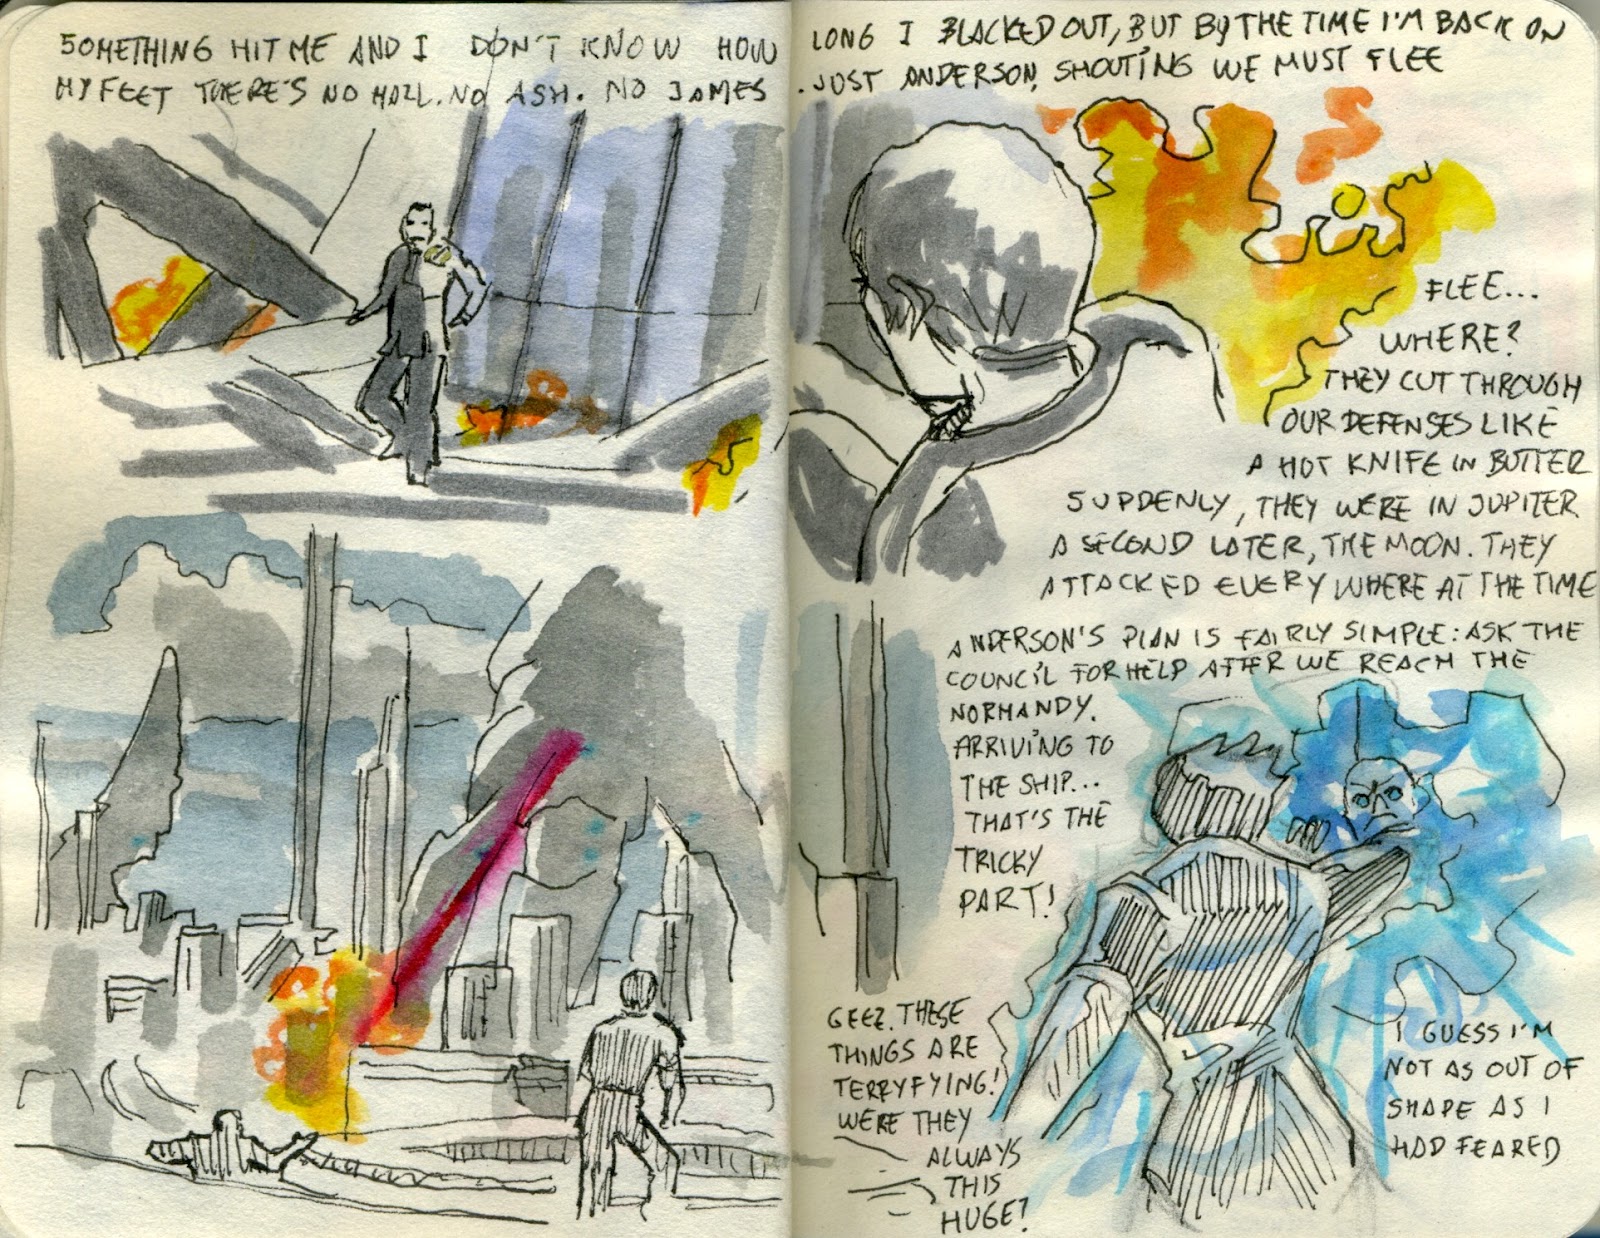 SOMETHING HIT ME AND I DON'T KNOW HOW LONG I BLACKED OUT, BUT BY THE TIME I'M BACK ON
MY FEET THERE'S NO HALL. NO ASH. NO JAMES. JUST ANDERSON, SHOUTING WE MUST FLEE
FLEE...
WHERE?
THEY CUT THROUGH
OUR DEFENSES LIKE
A HOT KNIFE IN BUTTER
SUDDENLY, THEY WERE IN JUPITER
A SECOND LATER, THE MOON. THEY
ATTACKED EVERY WHERE AT THE TIME
ANDERSON'S PLAN IS FAIRLY SIMPLE: ASK THE
COUNCIL FOR HELP AFTER WE REACH THE
NORMANDY.
ARRIVING TO
THE SHIP...
THAT'S THE
TRICKY
PART!
GEEZ. THESE
THINGS ARE
TERRYFYING!
WERE THEY
ALWAYS
THIS
HUGE?
I GUESS I'M
NOT AS OUT OF
SHAPE AS I
HAD FEARED